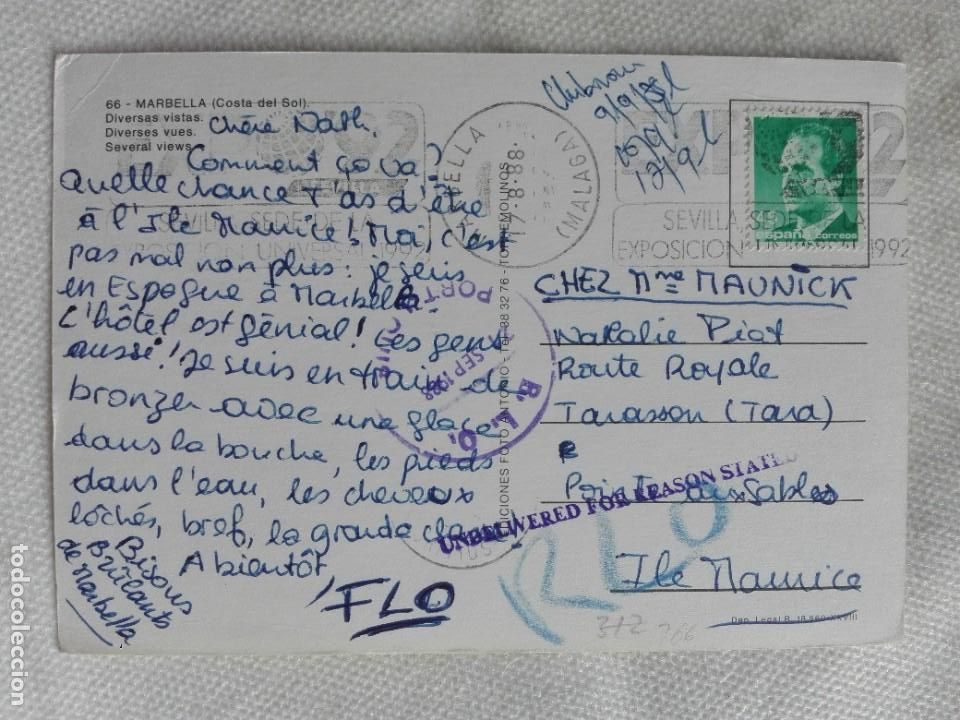 66 - MARBELLA (Costa del Sol).
Diversas vistas.
Diverses vues.
Several views
Chère Nath,
Comment ça va?
Quelle chance t'as d'être
à l'Ile Maurice! Moi, c'est
pas mal non plus: je suis
en Espagne à Marbella.
L'hôtel est génial! Les gens
aussi! Je suis en train de
bronzer avec une glace
dans la bouche, les pieds
dans l'eau, les cheveux
lâchés, bref, la grande classe!
A bientôt,
FLO
Bisous
Brûlants
de Marbella
EDICIONES FOTO ANTONIO - 38 32 76 - TORREMOLINOS
MARBELLA
17.8.88.
(MALAGA)
SEVILLA, SEDE DE LA
EXPOSICION UNIVERSAL 1992
9/9/88
12/9
92
SEVILLA, SEDE DE LA
EXPOSICION UNIVERSAL 1992
españa correos
CHEZ Mme MAUNICK
Nathalie Piat
Route Royale
Tamasson (Tara)
Pointe aux Sables
Ile Maurice
PORT LOUIS
SEP 1988
R. L. O.
UNDELIVERED FOR REASON STATED
RLO
372
766
Dep. Legal B. 18.860-XXVIII
todocoleccion